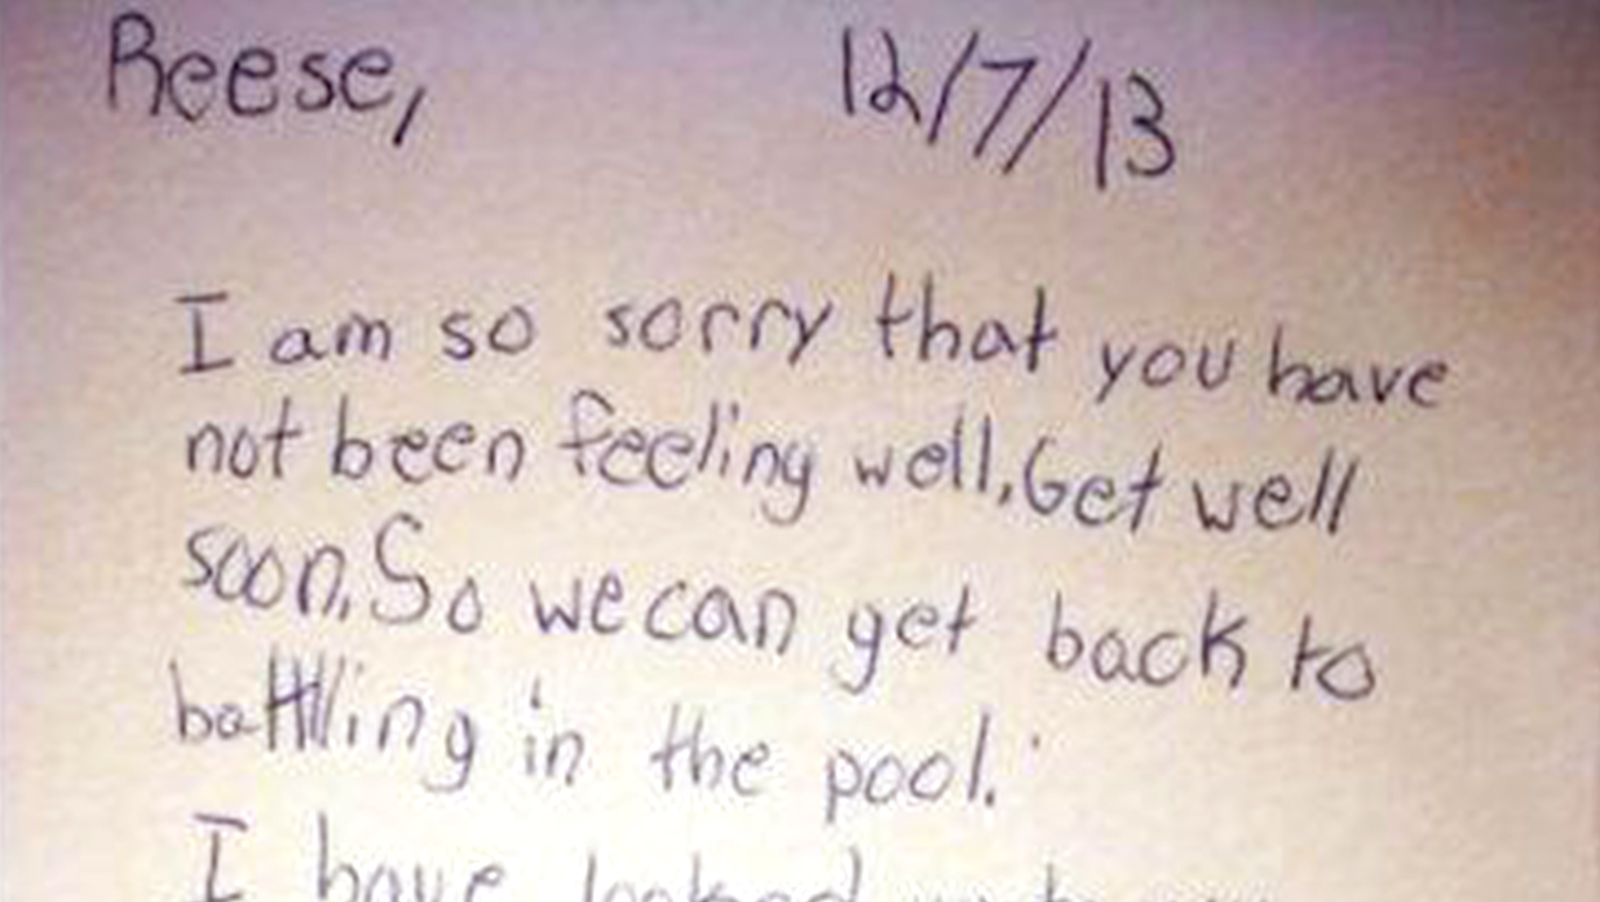 Reese, 12/7/13
I am so sorry that you have
not been feeling well. Get well
soon. So we can get back to
battling in the pool.
I have looked up to you